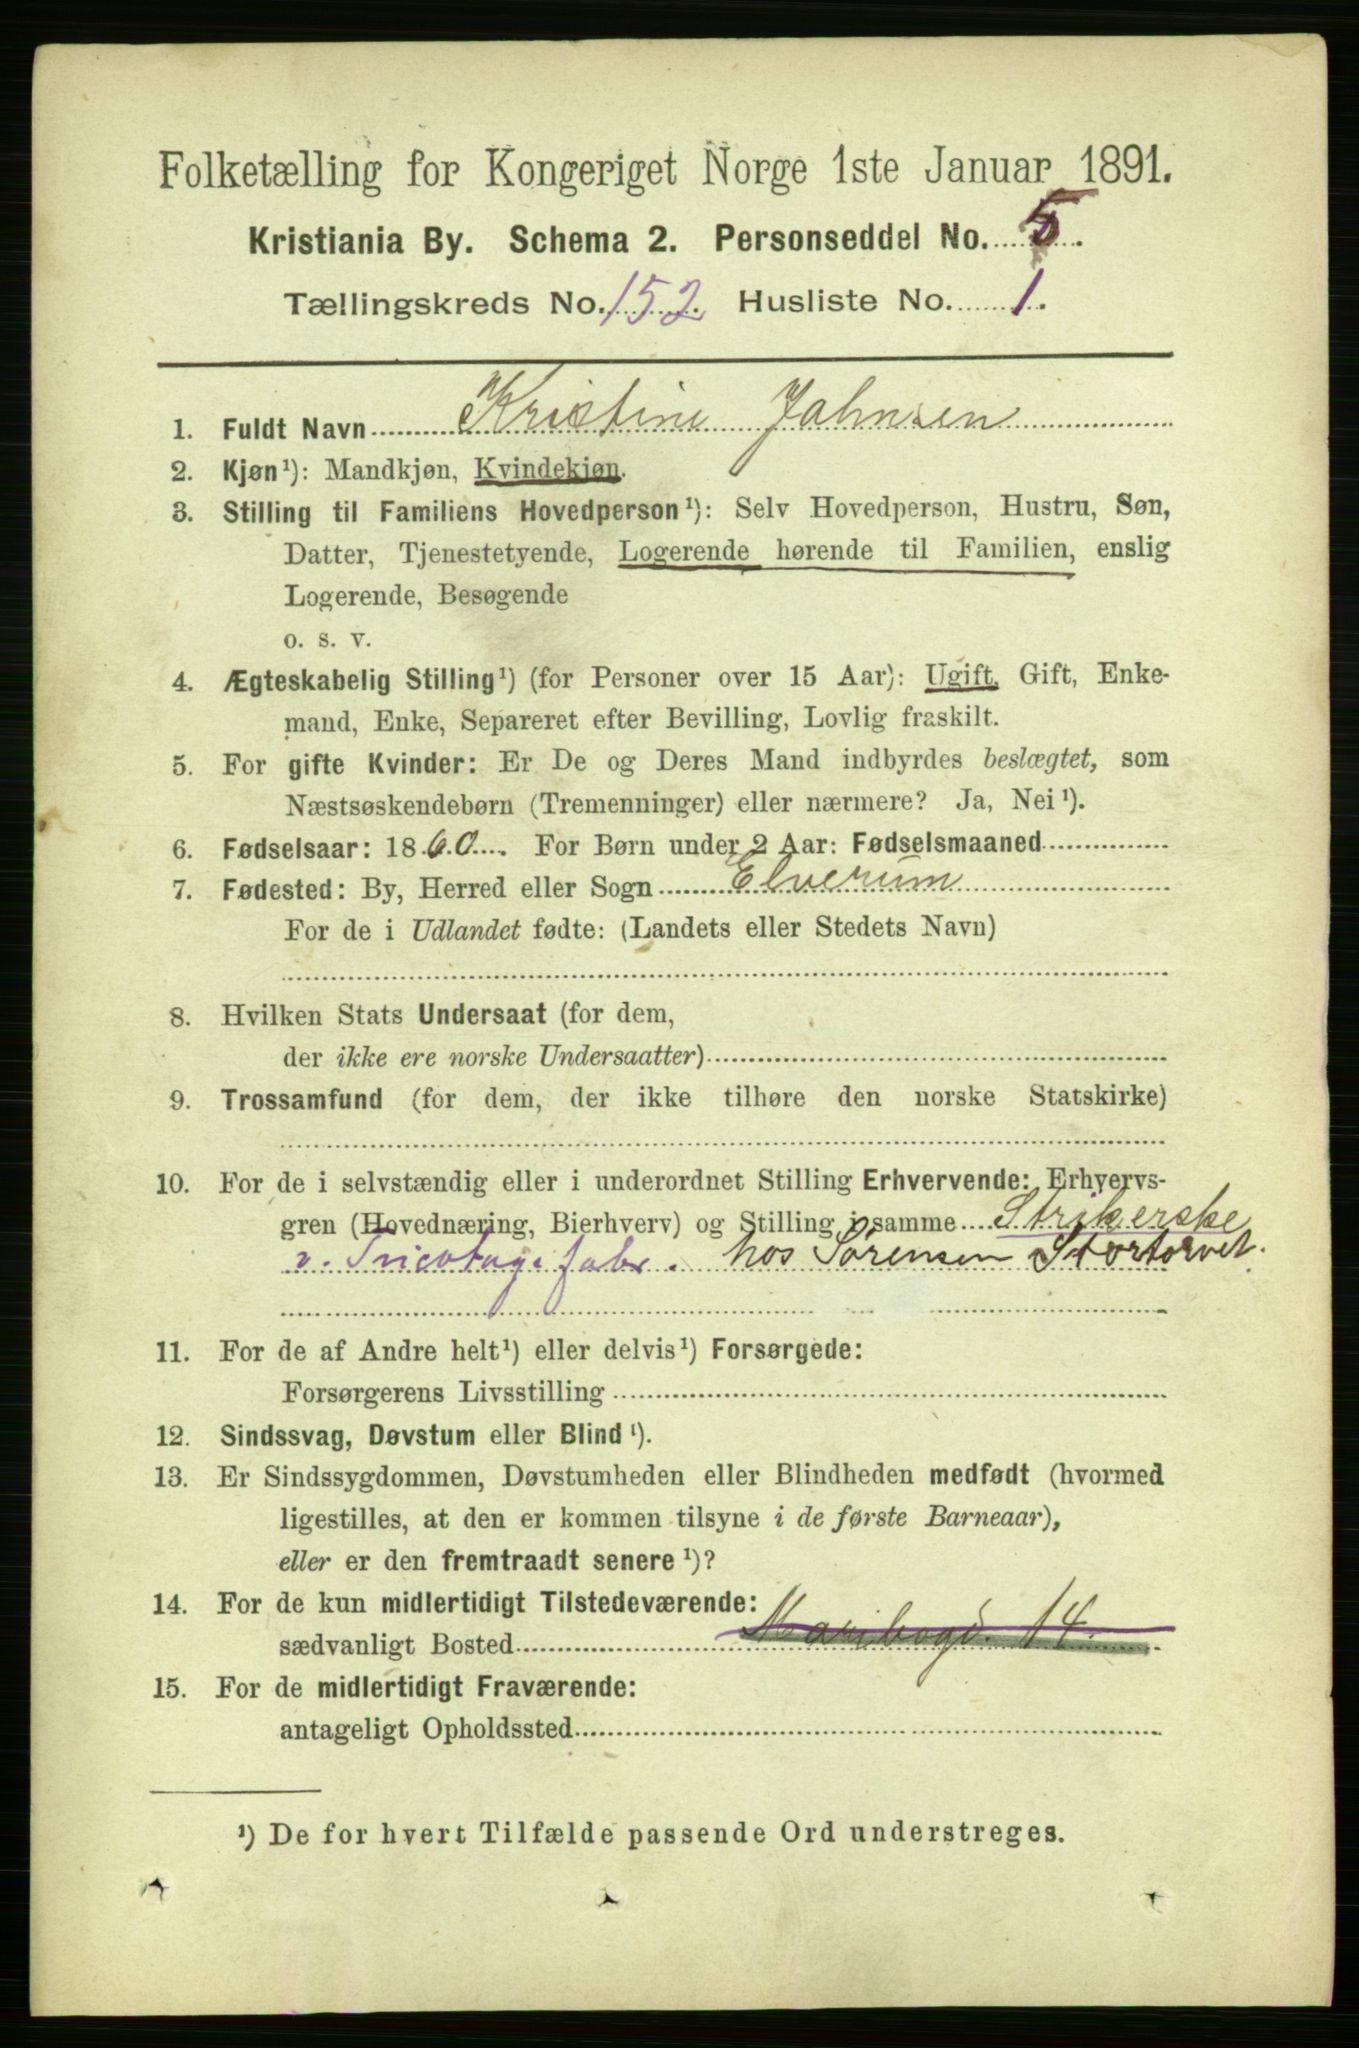 Folketælling for Kongeriget Norge 1ste Januar 1891.
Kristiania By. Schema 2. Personseddel No. 5.
Tællingskreds No. 152. Husliste No. 1.
1. Fuldt Navn Kristine Jahnsen
2. Kjøn¹): Mandkjøn, Kvindekjøn.
3. Stilling til Familiens Hovedperson¹): Selv Hovedperson, Hustru, Søn,
Datter, Tjenestetyende, Logerende hørende til Familien, enslig
Logerende, Besøgende
o. s. v.
4. Ægteskabelig Stilling¹) (for Personer over 15 Aar): Ugift, Gift, Enke-
mand, Enke, Separeret efter Bevilling, Lovlig fraskilt.
5. For gifte Kvinder: Er De og Deres Mand indbyrdes beslægtet, som
Næstsøskendebørn (Tremenninger) eller nærmere? Ja, Nei¹).
6. Fødselsaar: 1860. For Børn under 2 Aar: Fødselsmaaned
7. Fødested: By, Herred eller Sogn Elverum
For de i Udlandet fødte: (Landets eller Stedets Navn)
8. Hvilken Stats Undersaat (for dem,
der ikke ere norske Undersaatter)
9. Trossamfund (for dem, der ikke tilhøre den norske Statskirke)
10. For de i selvstændig eller i underordnet Stilling Erhvervende: Erhvervs-
gren (Hovednæring, Bierhverv) og Stilling i samme Strikerske
v. Tricotage fabr. hos Sörensen Stortorvet.
11. For de af Andre helt¹) eller delvis¹) Forsørgede:
Forsørgerens Livsstilling
12. Sindssvag, Døvstum eller Blind¹).
13. Er Sindssygdommen, Døvstumheden eller Blindheden medfødt (hvormed
ligestilles, at den er kommen tilsyne i de første Barneaar),
eller er den fremtraadt senere¹)?
14. For de kun midlertidigt Tilstedeværende:
sædvanligt Bosted Maribogd. 14.
15. For de midlertidigt Fraværende:
antageligt Opholdssted
¹) De for hvert Tilfælde passende Ord understreges.